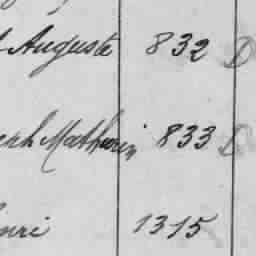 Auguste 832 D
Mathurin 833 D
1315